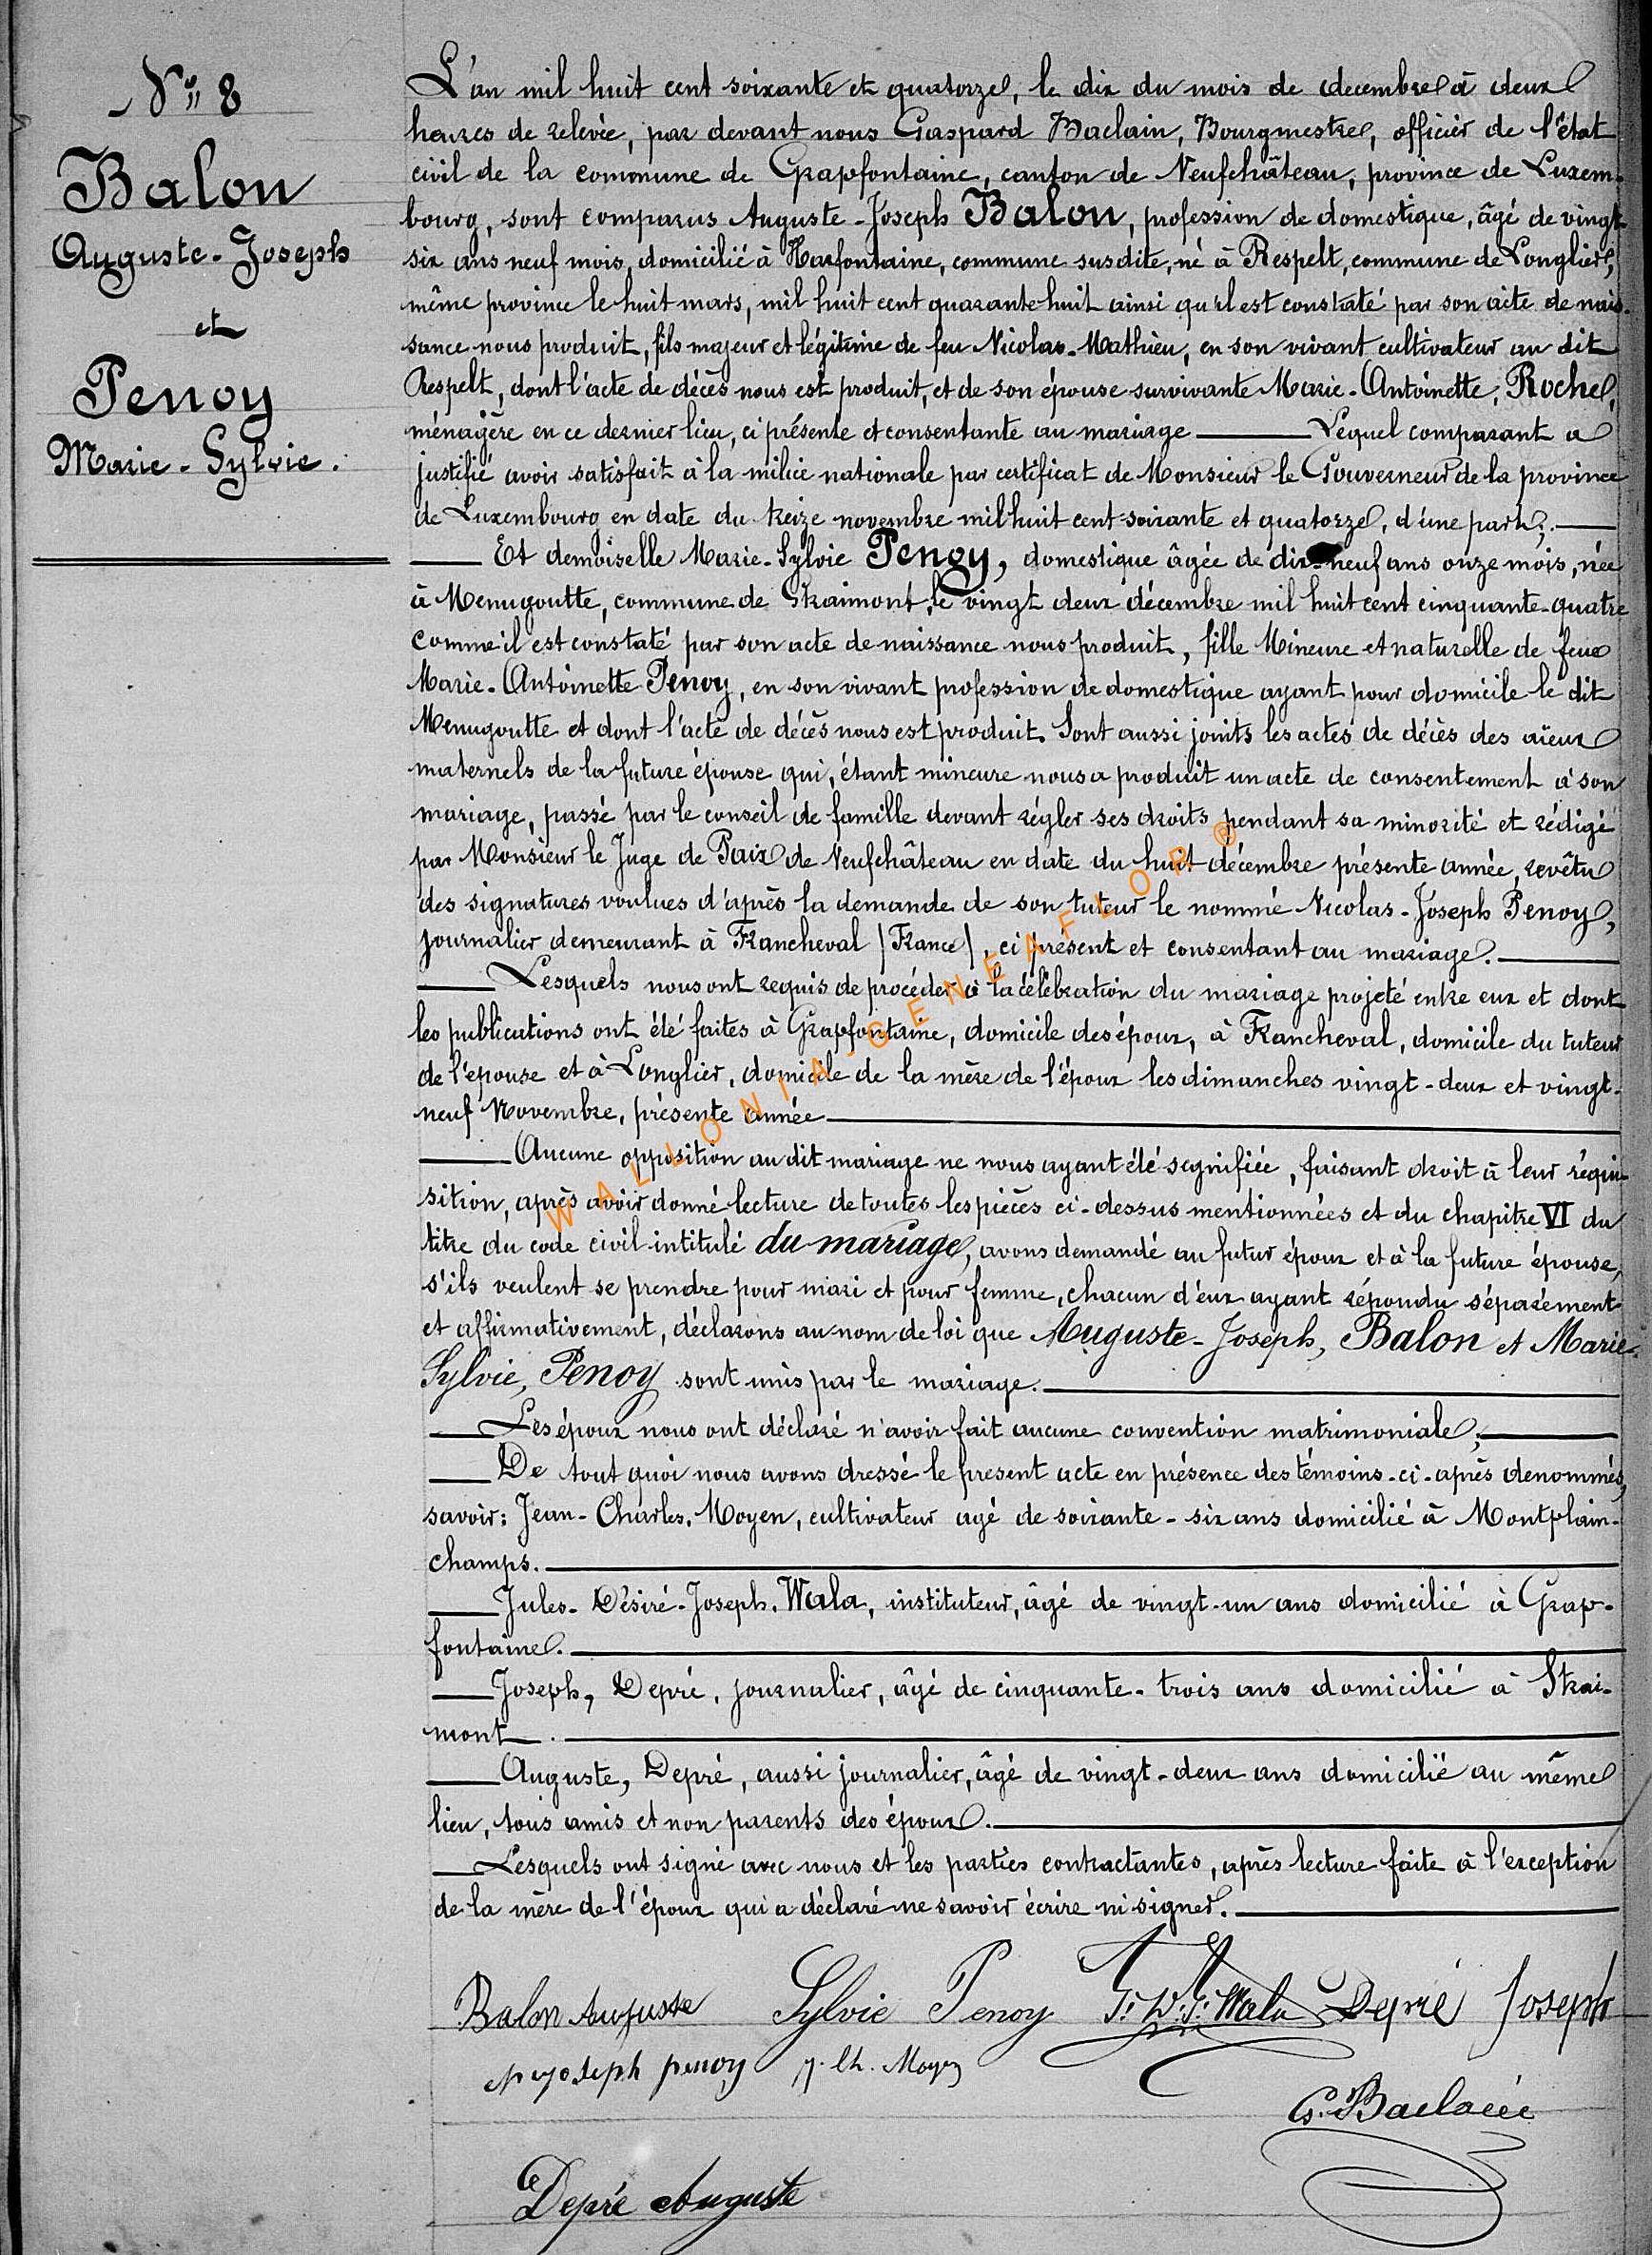 N° 8
Balon
Auguste-Joseph
et
Penoy
Marie-Sylvie.
L'an mil huit cent soixante et quatorze, le dix du mois de décembre à deux
heures de relevée, par devant nous Gaspard Baclain, Bourgmestre, officier de l'état
civil de la commune de Grapfontaine, canton de Neufchâteau, province de Luxem-
bourg, sont comparus Auguste-Joseph Balon, profession de domestique, âgé de vingt-
six ans neuf mois, domicilié à Harfontaine, commune susdite, né à Respelt, commune de Longlier,
même province le huit mars, mil huit cent quarante-huit ainsi qu'il est constaté par son acte de nais-
sance nous produit, fils majeur et légitime de feu Nicolas-Mathieu, en son vivant cultivateur au dit
Respelt, dont l'acte de décès nous est produit, et de son épouse survivante Marie-Antoinette, Roche,
ménagère en ce dernier lieu, ci présente et consentante au mariage ___ Lequel comparant a
justifié avoir satisfait à la milice nationale par certificat de Monsieur le Gouverneur de la province
de Luxembourg en date du treize novembre mil huit cent soixante et quatorze, d'une part;
Et demoiselle Marie-Sylvie Penoy, domestique âgée de dix-neuf ans onze mois, née
à Menugoutte, commune de Straimont, le vingt deux décembre mil huit cent cinquante-quatre
comme il est constaté par son acte de naissance nous produit, fille Mineure et naturelle de feue
Marie-Antoinette Penoy, en son vivant profession de domestique ayant pour domicile le dit
Menugoutte et dont l'acte de décès nous est produit. Sont aussi joints les actes de décès des aïeux
maternels de la future épouse qui, étant mineure nous a produit un acte de consentement à son
mariage, passé par le conseil de famille devant régler ses droits pendant sa minorité et rédigé
par Monsieur le Juge de Paix de Neufchâteau en date du huit décembre présente année, revêtu
des signatures voulues d'après la demande de son tuteur le nommé Nicolas-Joseph Penoy,
journalier demeurant à Francheval (France), ci présent et consentant au mariage.
Lesquels nous ont requis de procéder à la célébration du mariage projeté entre eux et dont
les publications ont été faites à Grapfontaine, domicile des époux, à Francheval, domicile du tuteur
de l'épouse et à Longlier, domicile de la mère de l'époux les dimanches vingt-deux et vingt-
neuf Novembre, présente année
Aucune opposition au dit mariage ne nous ayant été segnifiée, faisant droit à leur réqui-
sition, après avoir donné lecture de toutes les pièces ci-dessus mentionnées et du chapitre VI du
titre du code civil intitulé du mariage, avons demandé au futur époux et à la future épouse,
s'ils veulent se prendre pour mari et pour femme, chacun d'eux ayant répondu séparément
et affirmativement, déclarons au nom de loi que Auguste-Joseph, Balon et Marie-
Sylvie, Penoy sont unis par le mariage.
Les époux nous ont déclaré n'avoir fait aucune convention matrimoniale;
De tout quoi nous avons dressé le present acte en présence des témoins-ci-après denommés,
savoir: Jean-Charles, Moyen, cultivateur agé de soixante-six ans domicilié à Montplain-
champs.
Jules-Désiré-Joseph, Wala, instituteur, âgé de vingt-un ans domicilié à Grap-
fontaine.
Joseph, Depré, journalier, âgé de cinquante-trois ans domicilié à Strai-
mont.
Auguste, Depré, aussi journalier, âgé de vingt-deux ans domicilié au même
lieu, tous amis et non parents des époux.
Lesquels ont signé avec nous et les parties contractantes, après lecture faite à l'exception
de la mère de l'époux qui a déclaré ne savoir écrire ni signer.
Balon Auguste Sylvie Penoy J. D. J. Wala Depré Joseph
N Joseph penoy J. Ch. Moyen
G. Baclain
Depré Auguste
WALLONIA-GENEAFLOR®